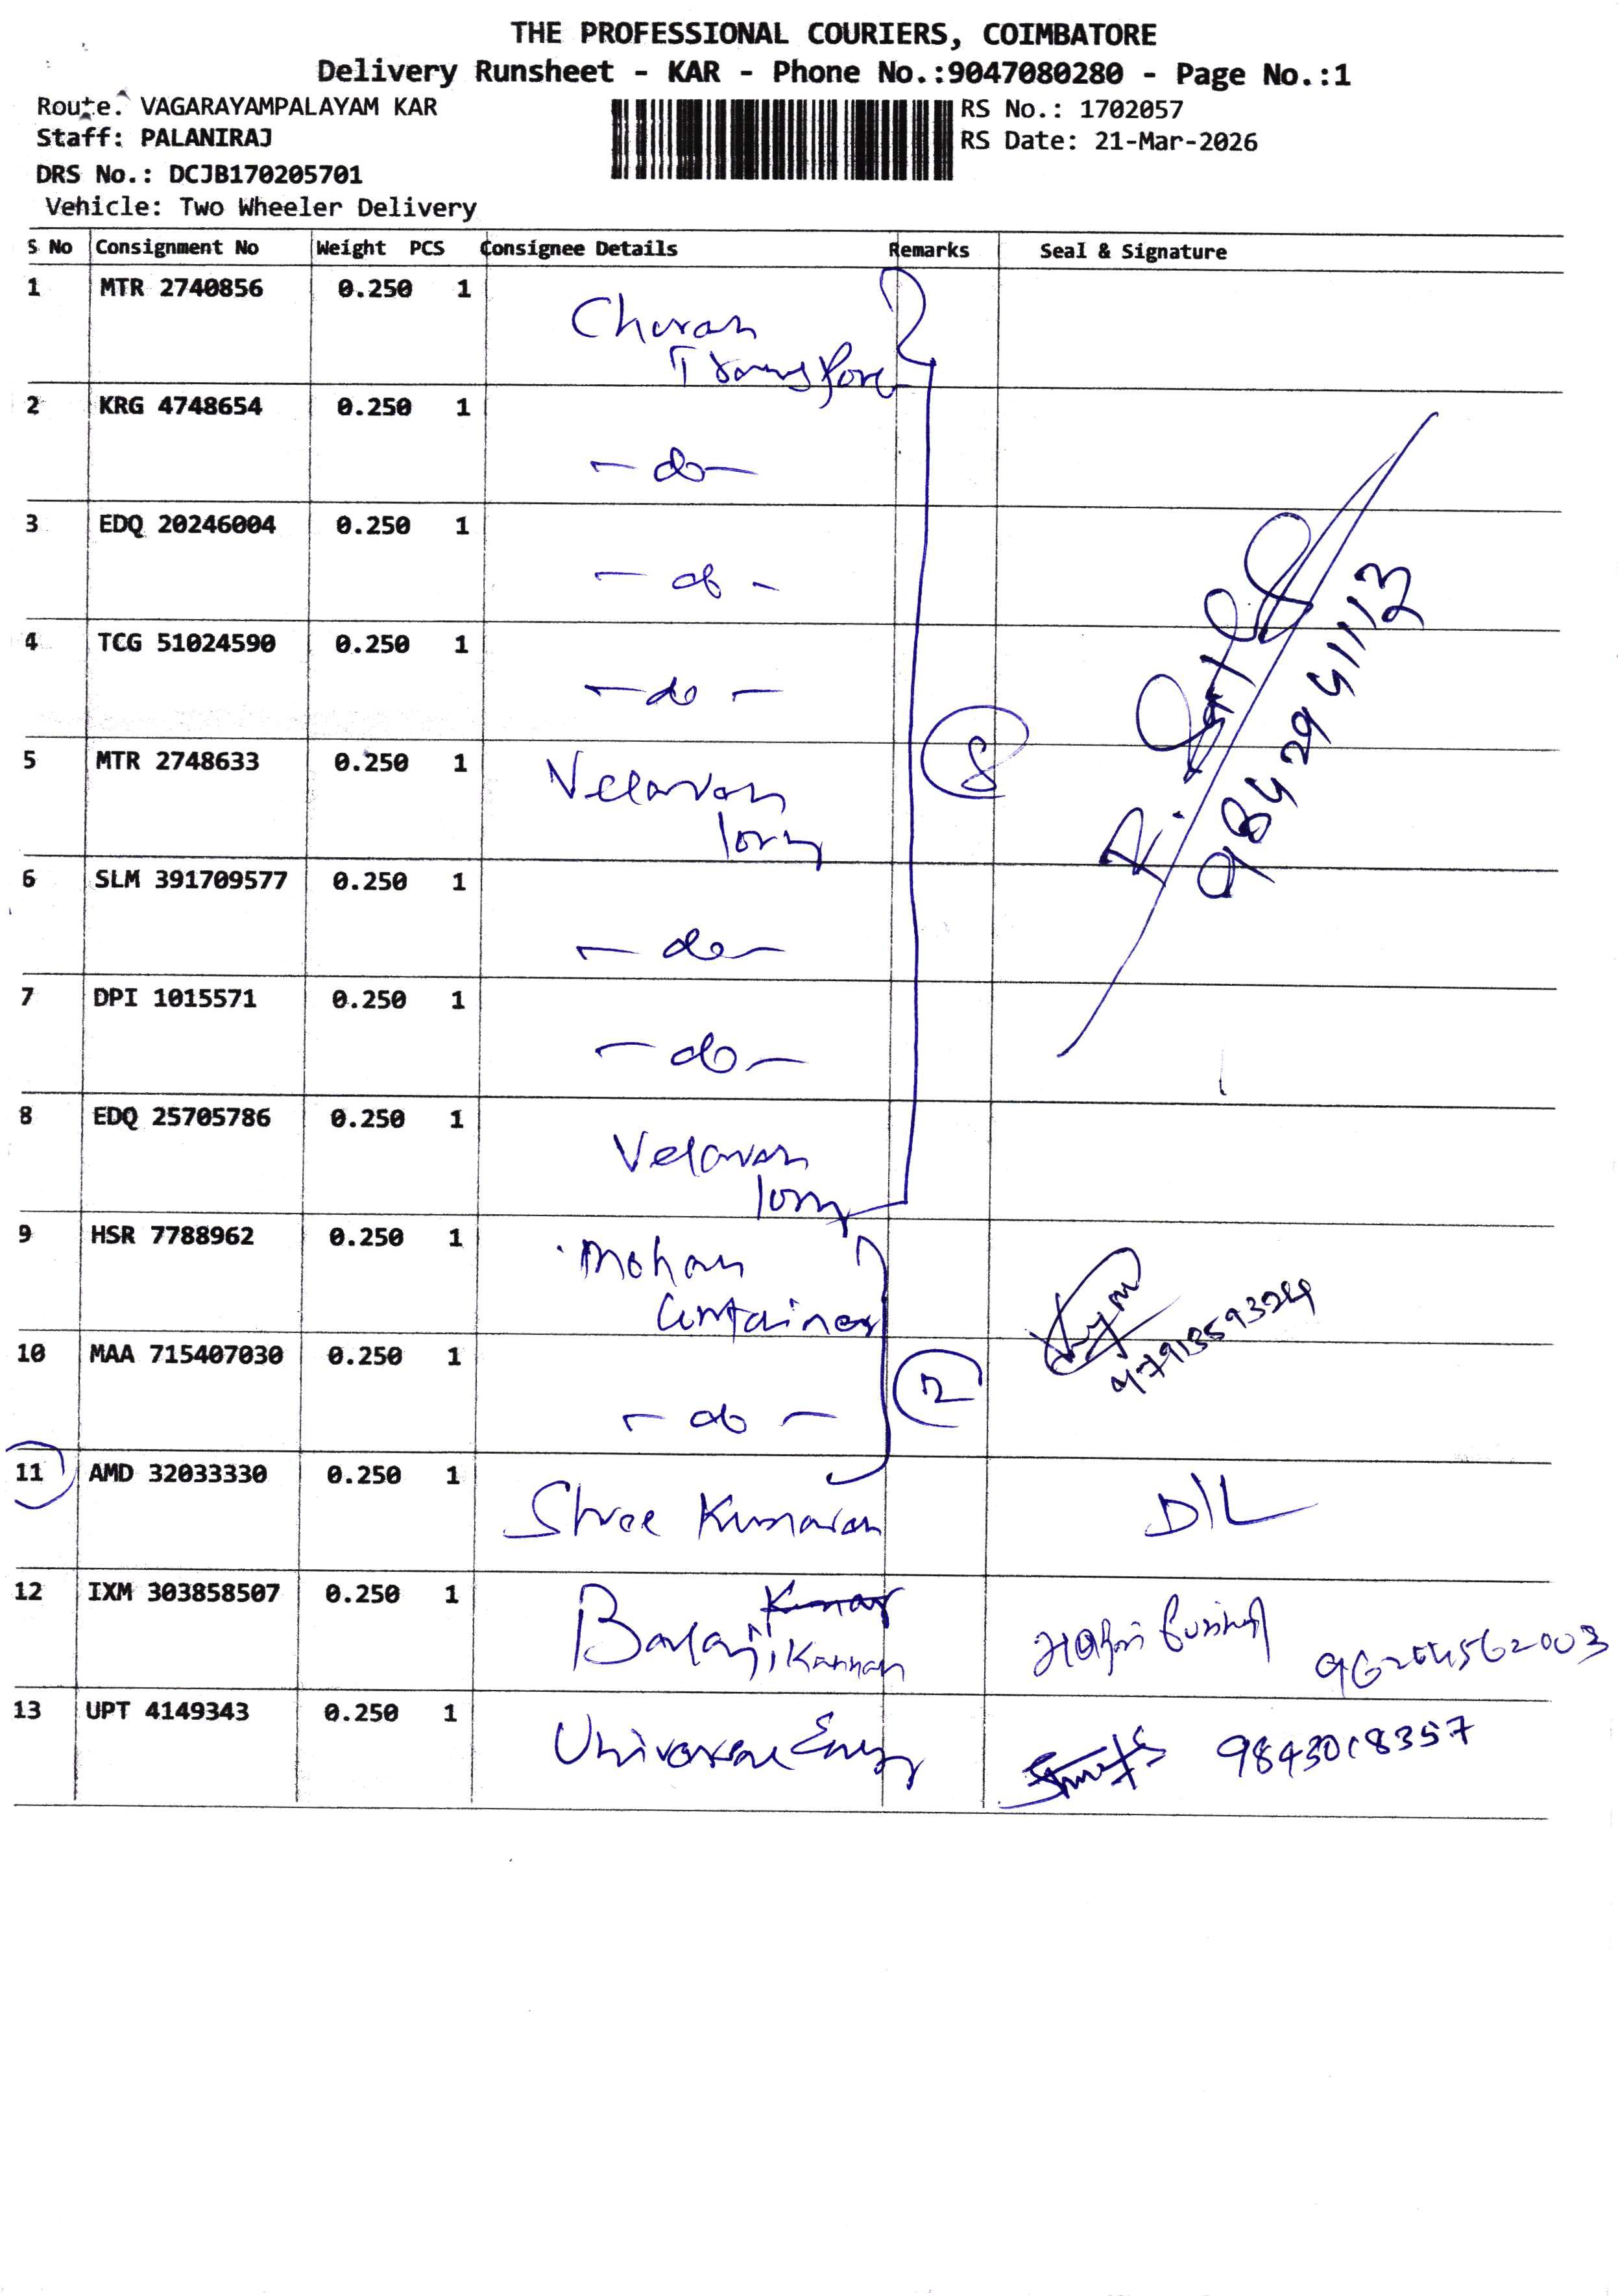 THE PROFESSIONAL COURIERS, COIMBATORE
Delivery Runsheet - KAR - Phone No.:9047080280 - Page No.:1
Route: VAGARAYAMPALAYAM KAR
RS No.: 1702057
Staff: PALANIRAJ
RS Date: 21-Mar-2026
DRS No.: DCJB170205701
Vehicle: Two Wheeler Delivery
S No Consignment No Weight PCS Consignee Details Remarks Seal & Signature
1 MTR 2740856 0.250 1 Cheran
Transport
2 KRG 4748654 0.250 1
- do -
3 EDQ 20246004 0.250 1
- do -
4 TCG 51024590 0.250 1
- do -
5 MTR 2748633 0.250 1 Velavan
lorry
8
9842941113
6 SLM 391709577 0.250 1
- do -
7 DPI 1015571 0.250 1
- do -
8 EDQ 25705786 0.250 1
Velavan
lorry
9 HSR 7788962 0.250 1 Mohan
Container
10 MAA 715407030 0.250 1
- do -
2
11 AMD 32033330 0.250 1
Shree Kumaran D/L
12 IXM 303858507 0.250 1 Kumar
Balaji, Kannan
13 UPT 4149343 0.250 1
Universal Engg 9843018357